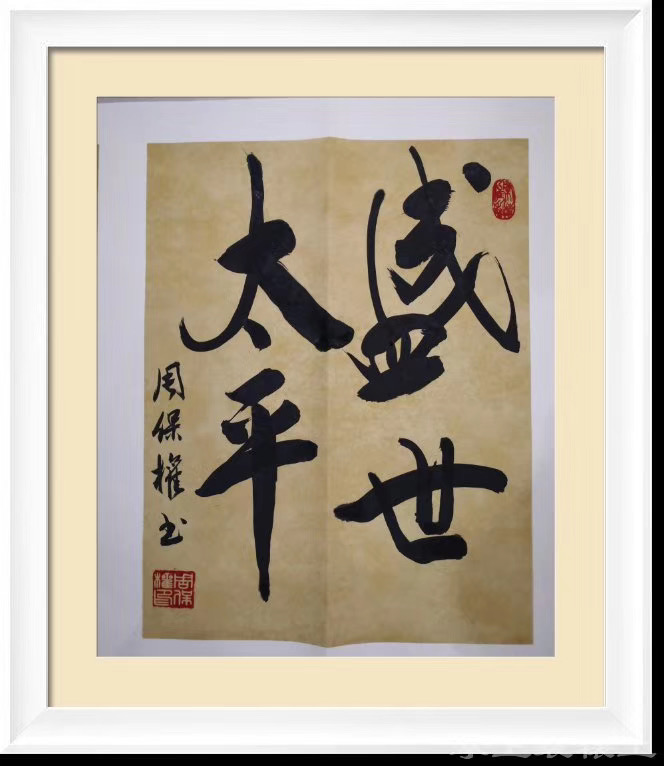 盛世
太平
周保權书
周保權印